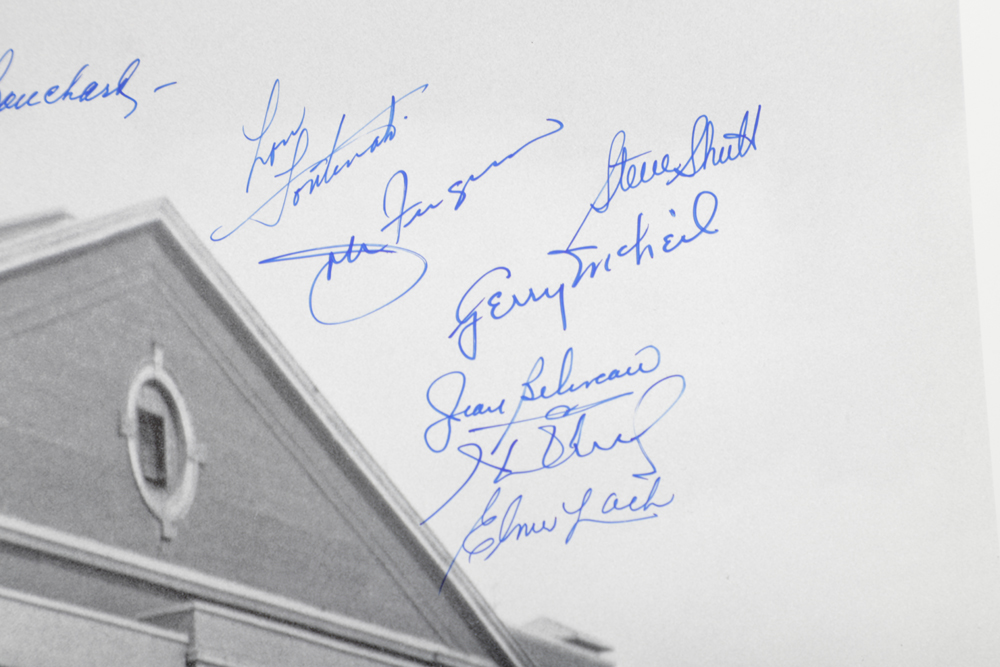 Bouchard -
Lou
Fontinato.
John Ferguson
Steve Shutt
Gerry McNeil
Jean Beliveau
Elmer Lach